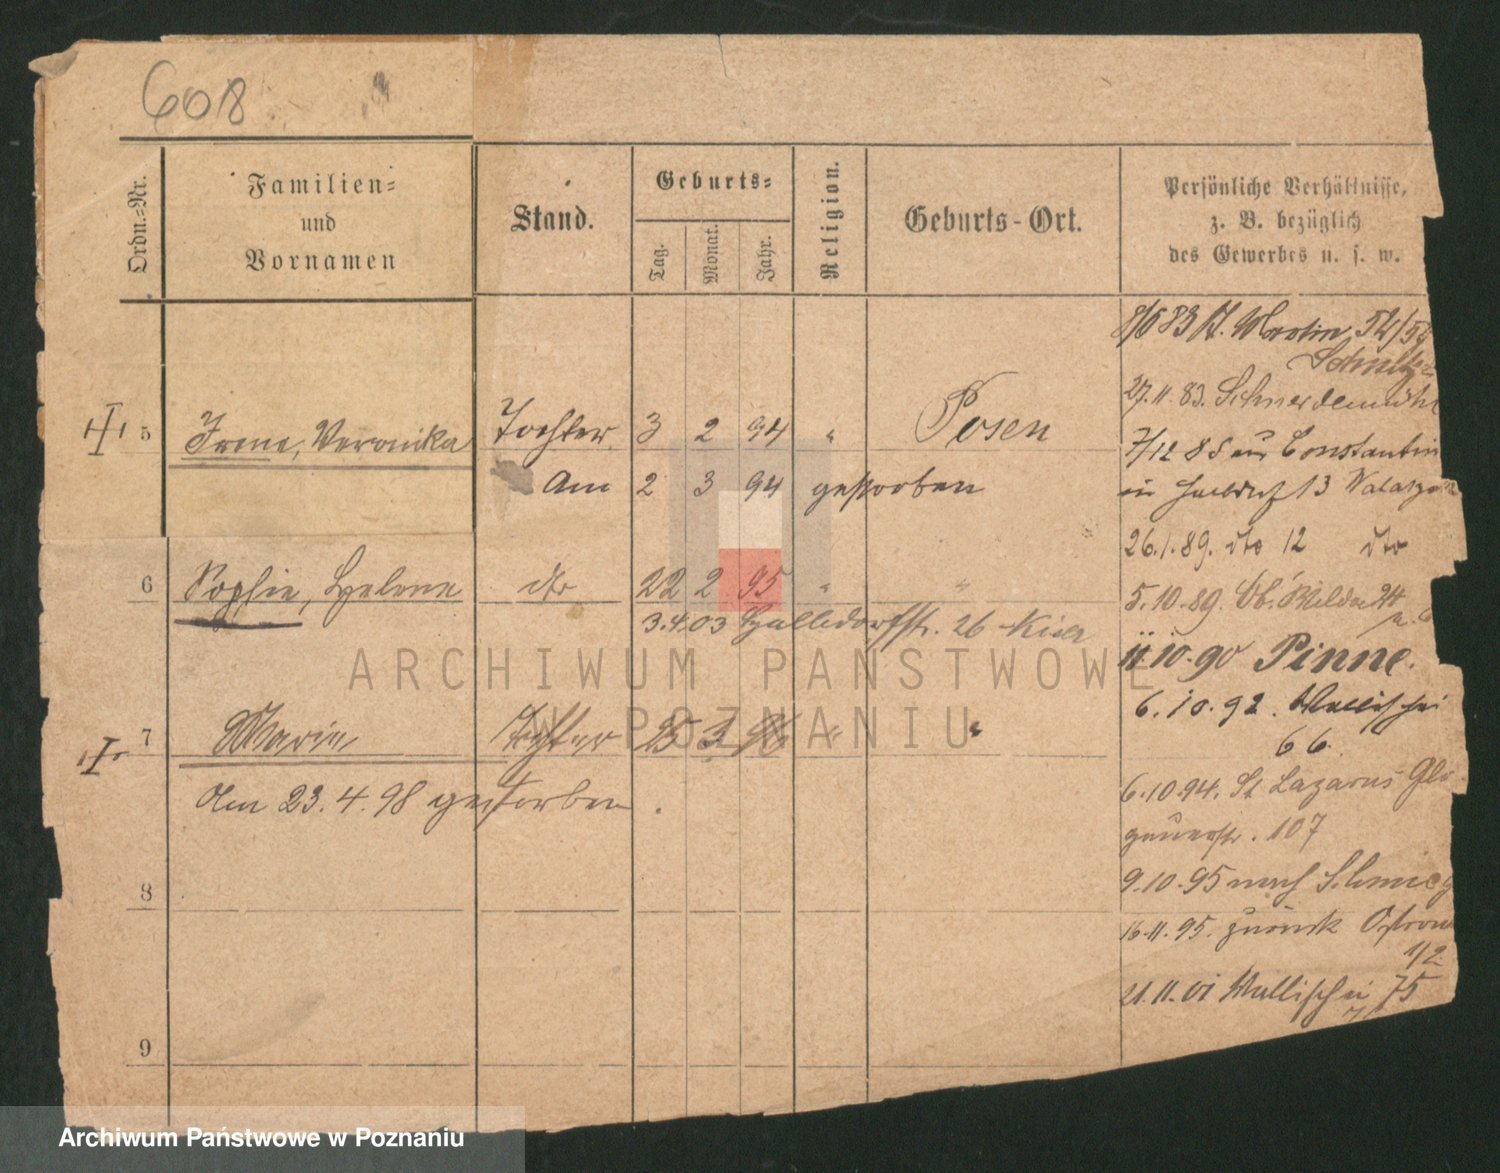 608
Ordn.-Nr.
Familien-
und
Vornamen
Stand.
Geburts-
Tag.
Monat.
Jahr.
Religion.
Geburts-Ort.
Persönliche Verhältnisse,
z. B. bezüglich
des Gewerbes u. s. w.
5 Irene, Veronika Tochter 3 2 94 " Posen
Am 2 3 94 gestorben
6 Sophie, Helene do 22 2 95 " "
3.4.03 Halldorfstr. 26
7 Marie Tochter 25 3 96 " "
Am 23.4.98 gestorben.
8
9
8/5 83 St. Martin 54/55
27.11.83. Schneidemühl
7/12 85 aus Constantin
in 13
26.1.89. dto 12 dto
5.10.89. Ob. Wilda 24
11.10.90 Pinne.
6.10.92. Wallischei
66.
6.10.94. St Lazarus Glo
gauerstr. 107
9.10.95 nach Schmieg
16.11.95. zurück Ostrow
1/2
21.11.01 Wallischei 75
ARCHIWUM PAŃSTWOWE
W POZNANIU
Archiwum Państwowe w Poznaniu